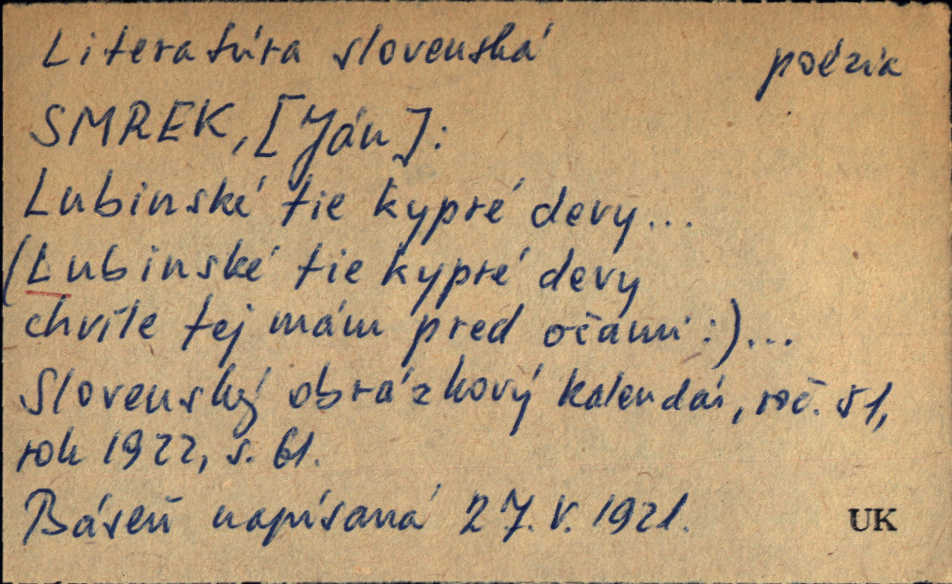 Literatúra slovenská poézia
SMREK, [Ján]:
Lubinské tie kypré devy...
(Lubinské tie kypré devy
chvíle tej mám pred očami:)...
Slovenský obrázkový kalendár, roč. 51,
rok 1922, s. 61.
Báseň napísaná 27. V. 1921.
UK